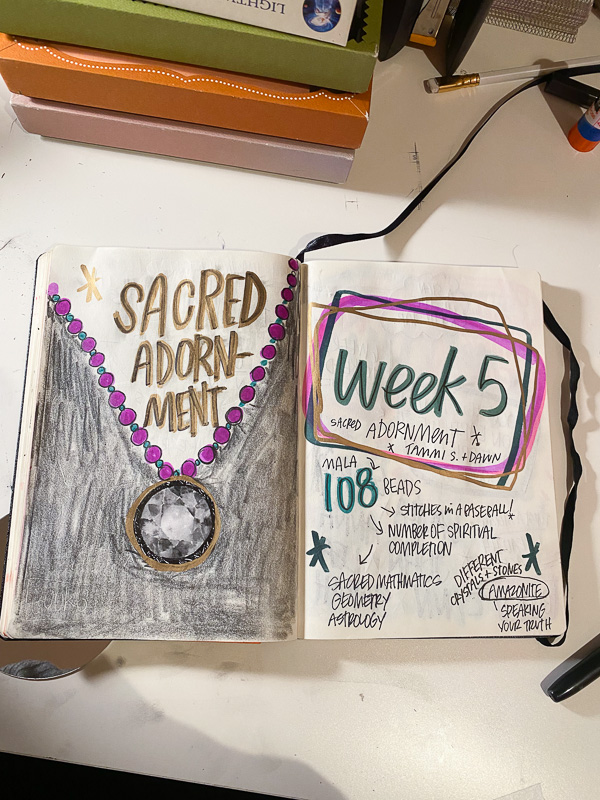 LIGHTW
SACRED
ADORN-
MENT
Week 5
SACRED ADORNMENT
TAMMI S. + DAWN
MALA
108 BEADS
STITCHES in A BASEBALL!
NUMBER OF SPIRITUAL
COMPLETION
SACRED MATHMATICS
GEOMETRY
ASTROLOGY
DIFFERENT
CRYSTALS + STONES
AMAZONITE
SPEAKING
YOUR TRUTH